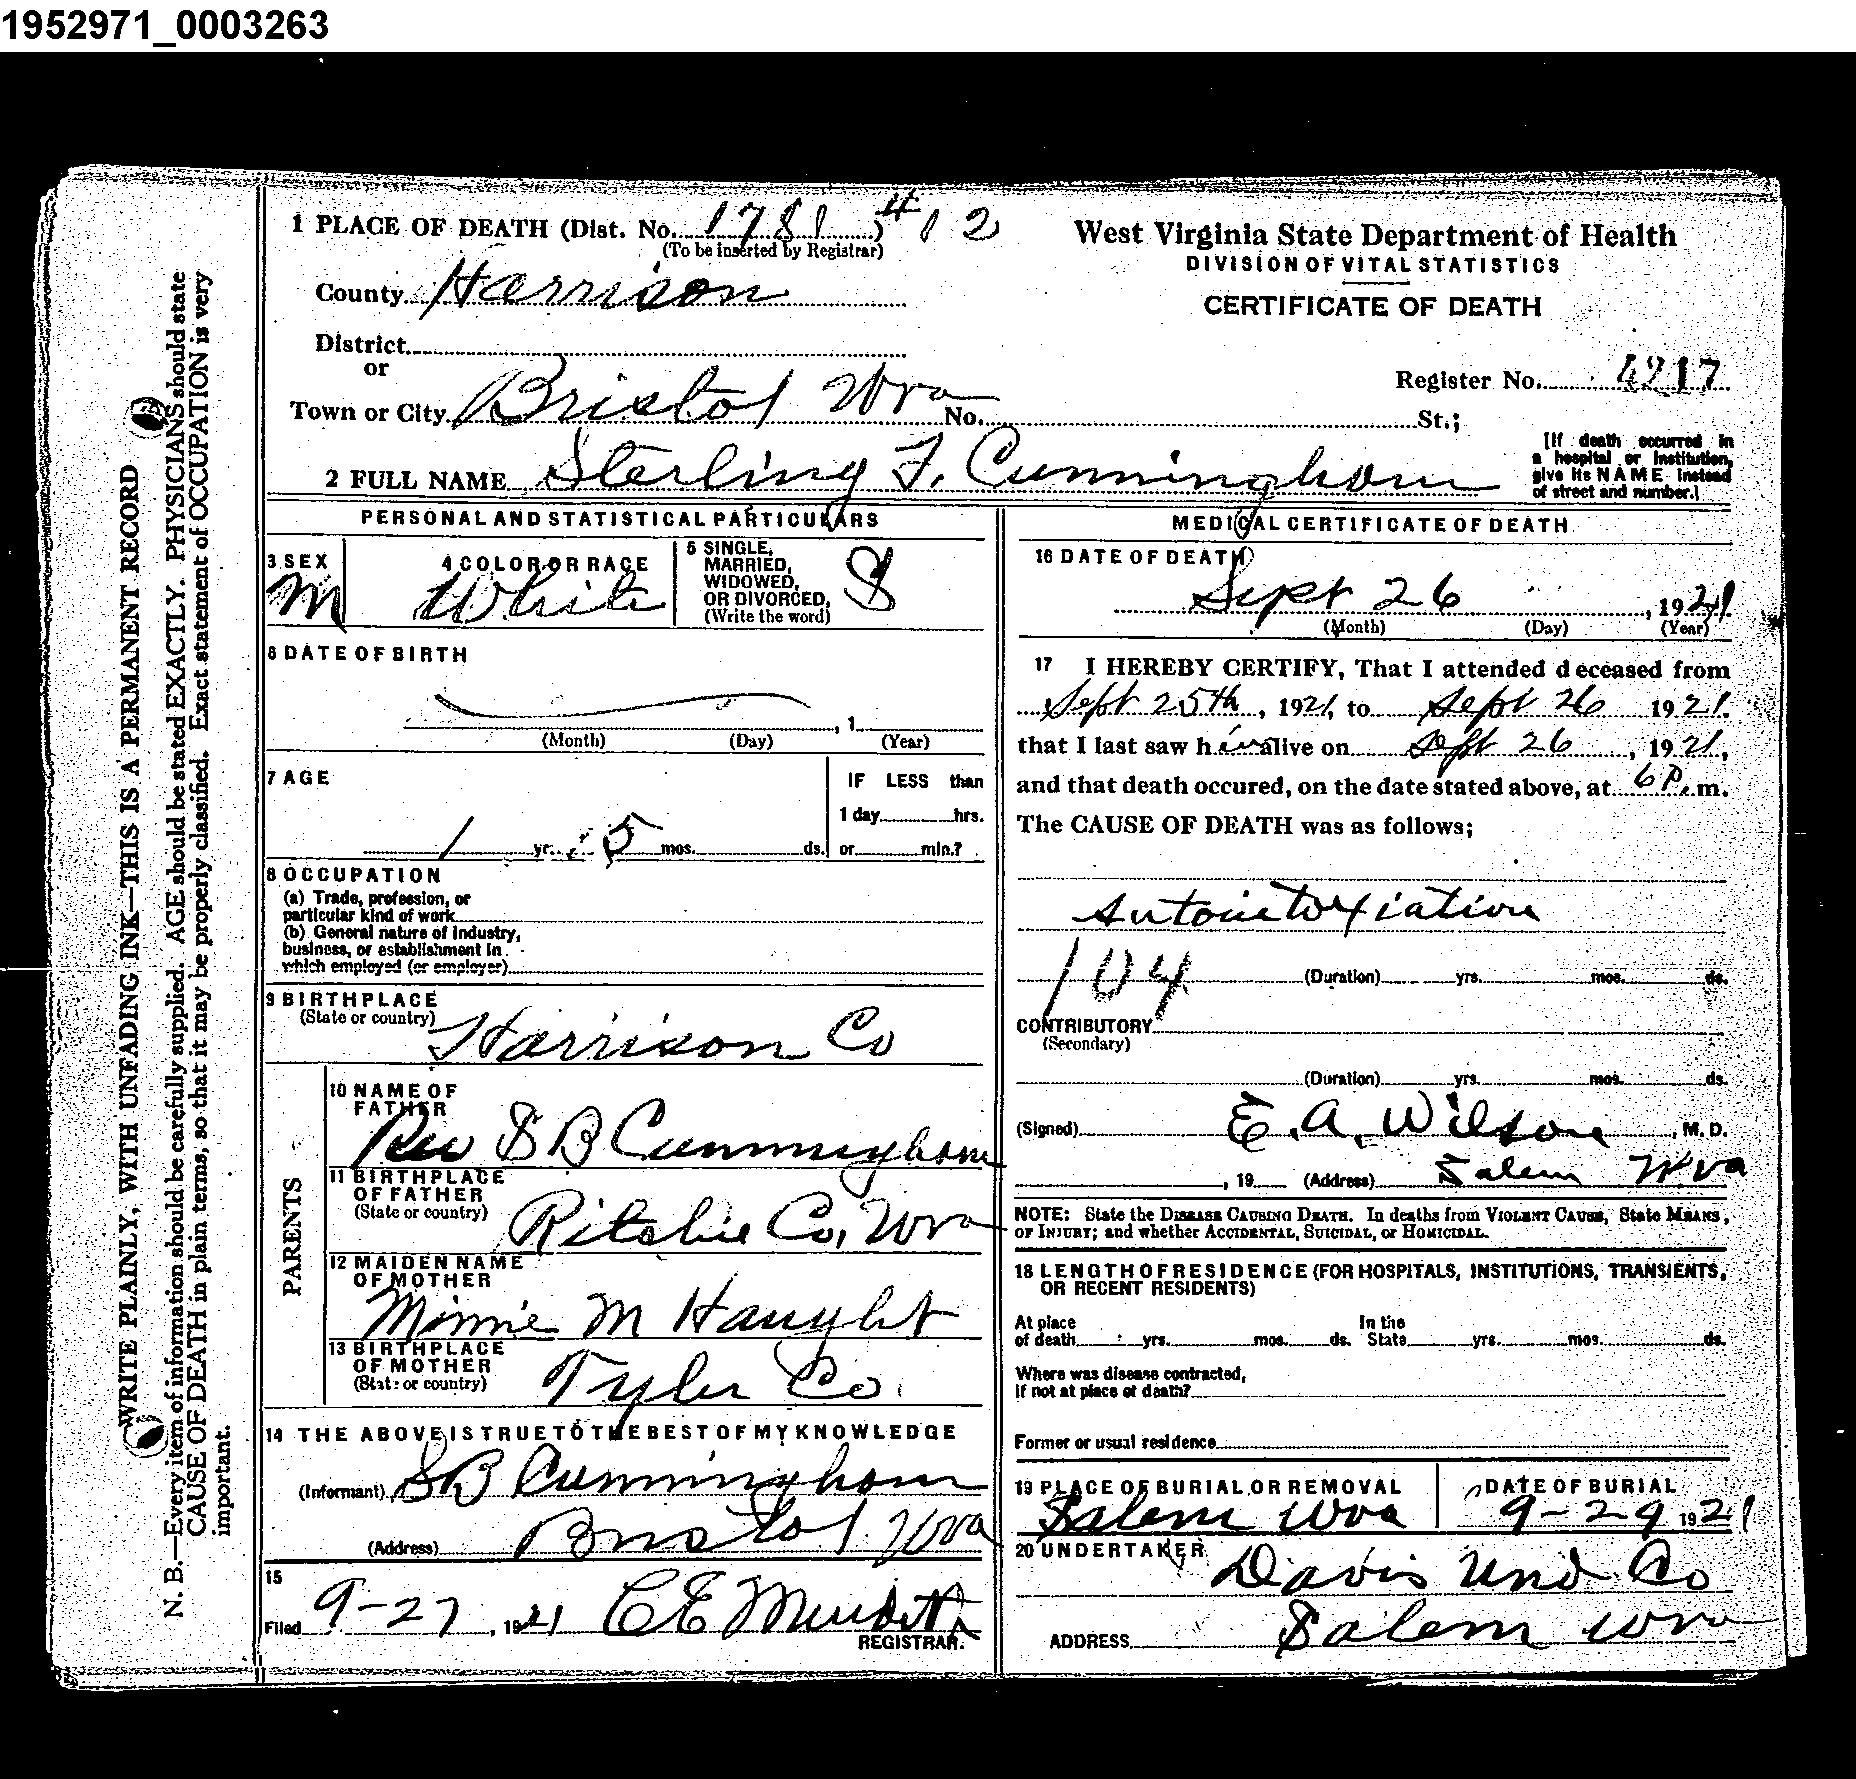 1952971_0003263
1 PLACE OF DEATH (Dist. No. 1781, #12
(To be inserted by Registrar)
County Harrison
District
or
Town or City Bristol Wva No. St.;
2 FULL NAME Sterling F. Cunningham
West Virginia State Department of Health
DIVISION OF VITAL STATISTICS
CERTIFICATE OF DEATH
Register No. 4217
[If death occurred in
a hospital or institution,
give its NAME instead
of street and number.]
WRITE PLAINLY, WITH UNFADING INK—THIS IS A PERMANENT RECORD
N. B.—Every item of information should be carefully supplied. AGE should be stated EXACTLY. PHYSICIANS should state
CAUSE OF DEATH in plain terms, so that it may be properly classified. Exact statement of OCCUPATION is very
important.
PERSONAL AND STATISTICAL PARTICULARS
3 SEX
M
4 COLOR OR RACE
White
5 SINGLE,
MARRIED,
WIDOWED,
OR DIVORCED,
(Write the word)
S
6 DATE OF BIRTH
, 1
(Month) (Day) (Year)
7 AGE
1 yr. 5 mos. ds.
IF LESS than
1 day hrs.
or min.?
8 OCCUPATION
(a) Trade, profession, or
particular kind of work
(b) General nature of industry,
business, or establishment in
which employed (or employer)
9 BIRTHPLACE
(State or country)
Harrison Co
PARENTS
10 NAME OF
FATHER
Rev S B Cunningham
11 BIRTHPLACE
OF FATHER
(State or country)
Ritchie Co, Wva
12 MAIDEN NAME
OF MOTHER
Minnie M Haught
13 BIRTHPLACE
OF MOTHER
(State or country)
Tyler Co.
14 THE ABOVE IS TRUE TO THE BEST OF MY KNOWLEDGE
(Informant) S B Cunningham
(Address) Bristol Wva
15
Filed 9-27, 1921 C E Meredith
REGISTRAR.
MEDICAL CERTIFICATE OF DEATH
16 DATE OF DEATH
Sept 26, 1921
(Month) (Day) (Year)
17 I HEREBY CERTIFY, That I attended deceased from
Sept 25th, 1921, to Sept 26 1921.
that I last saw him alive on Sept 26, 1921,
and that death occured, on the date stated above, at 6 P. m.
The CAUSE OF DEATH was as follows;
Autointoxiation
104 (Duration) yrs. mos. ds.
CONTRIBUTORY
(Secondary)
(Duration) yrs. mos. ds.
(Signed) E. A. Wilson, M. D.
, 19 (Address) Salem Wva
NOTE: State the DISEASE CAUSING DEATH. In deaths from VIOLENT CAUSE, State MEANS,
OF INJURY; and whether ACCIDENTAL, SUICIDAL, or HOMICIDAL.
18 LENGTH OF RESIDENCE (FOR HOSPITALS, INSTITUTIONS, TRANSIENTS,
OR RECENT RESIDENTS)
At place In the
of death yrs. mos. ds. State yrs. mos. ds.
Where was disease contracted,
if not at place of death?
Former or usual residence
19 PLACE OF BURIAL OR REMOVAL
Salem Wva
DATE OF BURIAL
9-29 1921
20 UNDERTAKER
Davis Und Co
ADDRESS Salem Wva